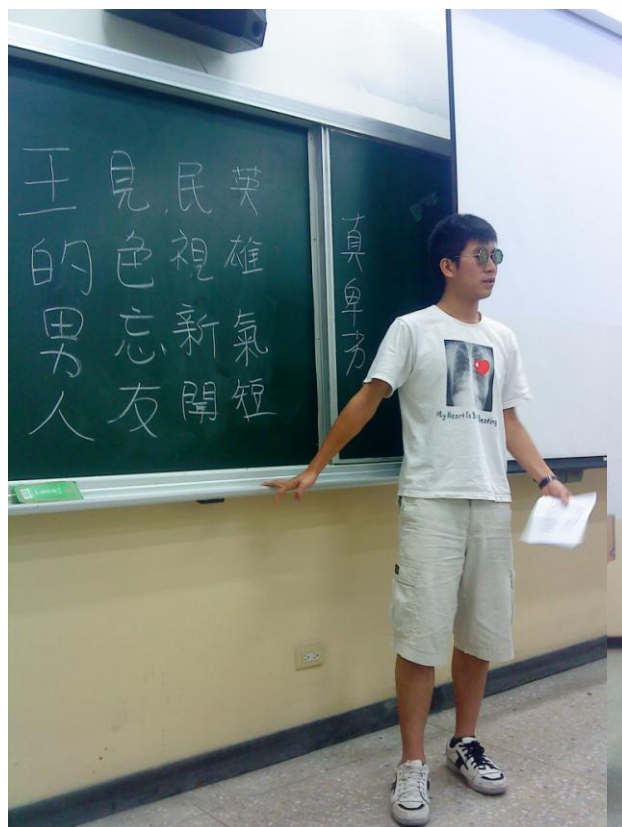 真卑劣
英雄氣短
民視新聞
見色忘友
王的男人
My Heart Is Beating